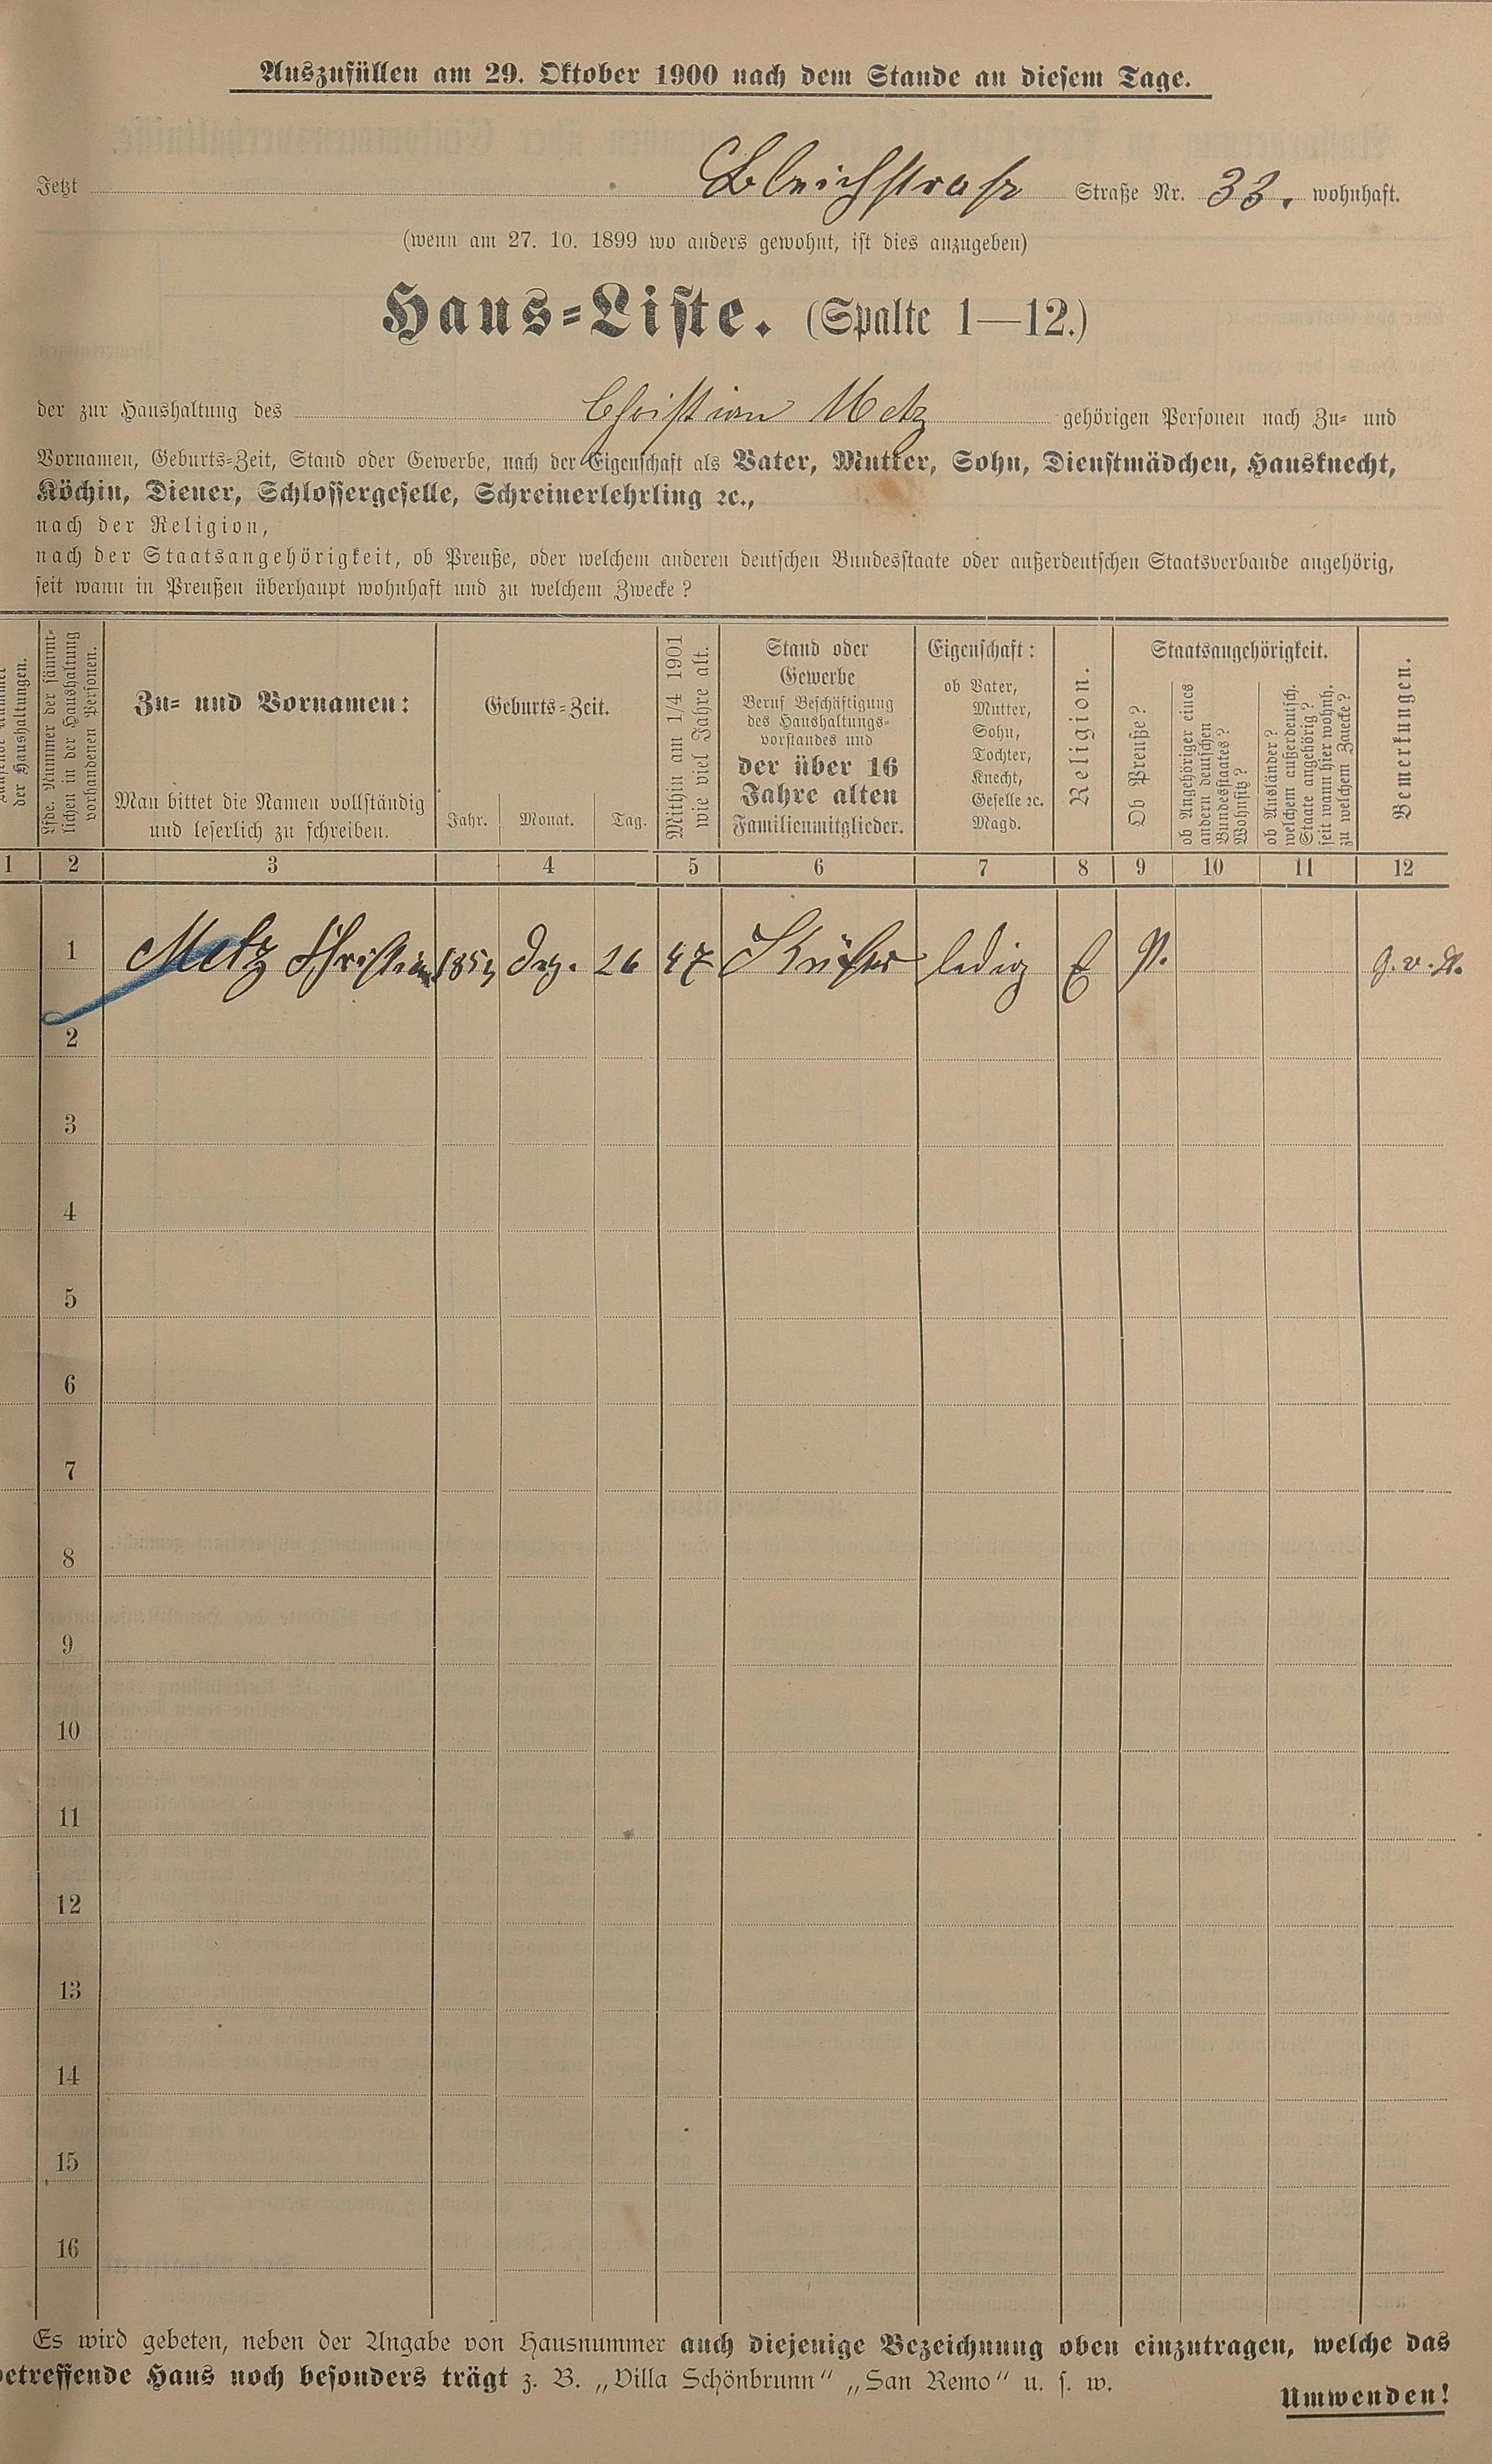 Auszufüllen am 29. Oktober 1900 nach dem Stande an diesem Tage.
Jetzt Bleichstraße Straße Nr. 33. wohnhaft.
(wenn am 27. 10. 1899 wo anders gewohnt, ist dies anzugeben)
Haus-Liste. (Spalte 1—12.)
der zur Haushaltung des Christian Metz gehörigen Personen nach Zu- und
Vornamen, Geburts-Zeit, Stand oder Gewerbe, nach der Eigenschaft als Vater, Mutter, Sohn, Dienstmädchen, Hausknecht,
Köchin, Diener, Schlossergeselle, Schreinerlehrling ꝛc.,
nach der Religion,
nach der Staatsangehörigkeit, ob Preuße, oder welchem anderen deutschen Bundesstaate oder außerdeutschen Staatsverbande angehörig,
seit wann in Preußen überhaupt wohnhaft und zu welchem Zwecke?
Nummer
der Haushaltungen.
Lfde. Nummer der sämmt-
lichen in der Haushaltung
vorhandenen Personen.
Zu- und Vornamen:
Man bittet die Namen vollständig
und leserlich zu schreiben.
Geburts-Zeit.
Jahr. Monat. Tag.
Mithin am 1/4 1901
wie viel Jahre alt.
Stand oder
Gewerbe
Beruf, Beschäftigung
des Haushaltungs-
vorstandes und
der über 16
Jahre alten
Familienmitglieder.
Eigenschaft:
ob Vater,
Mutter,
Sohn,
Tochter,
Knecht,
Geselle ꝛc.
Magd.
Religion.
Staatsangehörigkeit.
Ob Preuße?
ob Angehöriger eines
andern deutschen
Bundesstaates?
Wohnsitz?
ob Ausländer?
welchem außerdeutsch.
Staate angehörig?
seit wann hier wohnh.
zu welchem Zwecke?
Bemerkungen.
1 2 3 4 5 6 7 8 9 10 11 12
1 Metz Christian Dez. 26 47 Küfer ledig E P.
2
3
4
5
6
7
8
9
10
11
12
13
14
15
16
Es wird gebeten, neben der Angabe von Hausnummer auch diejenige Bezeichnung oben einzutragen, welche das
betreffende Haus noch besonders trägt z. B. „Villa Schönbrunn“ „San Remo“ u. s. w.
Umwenden!